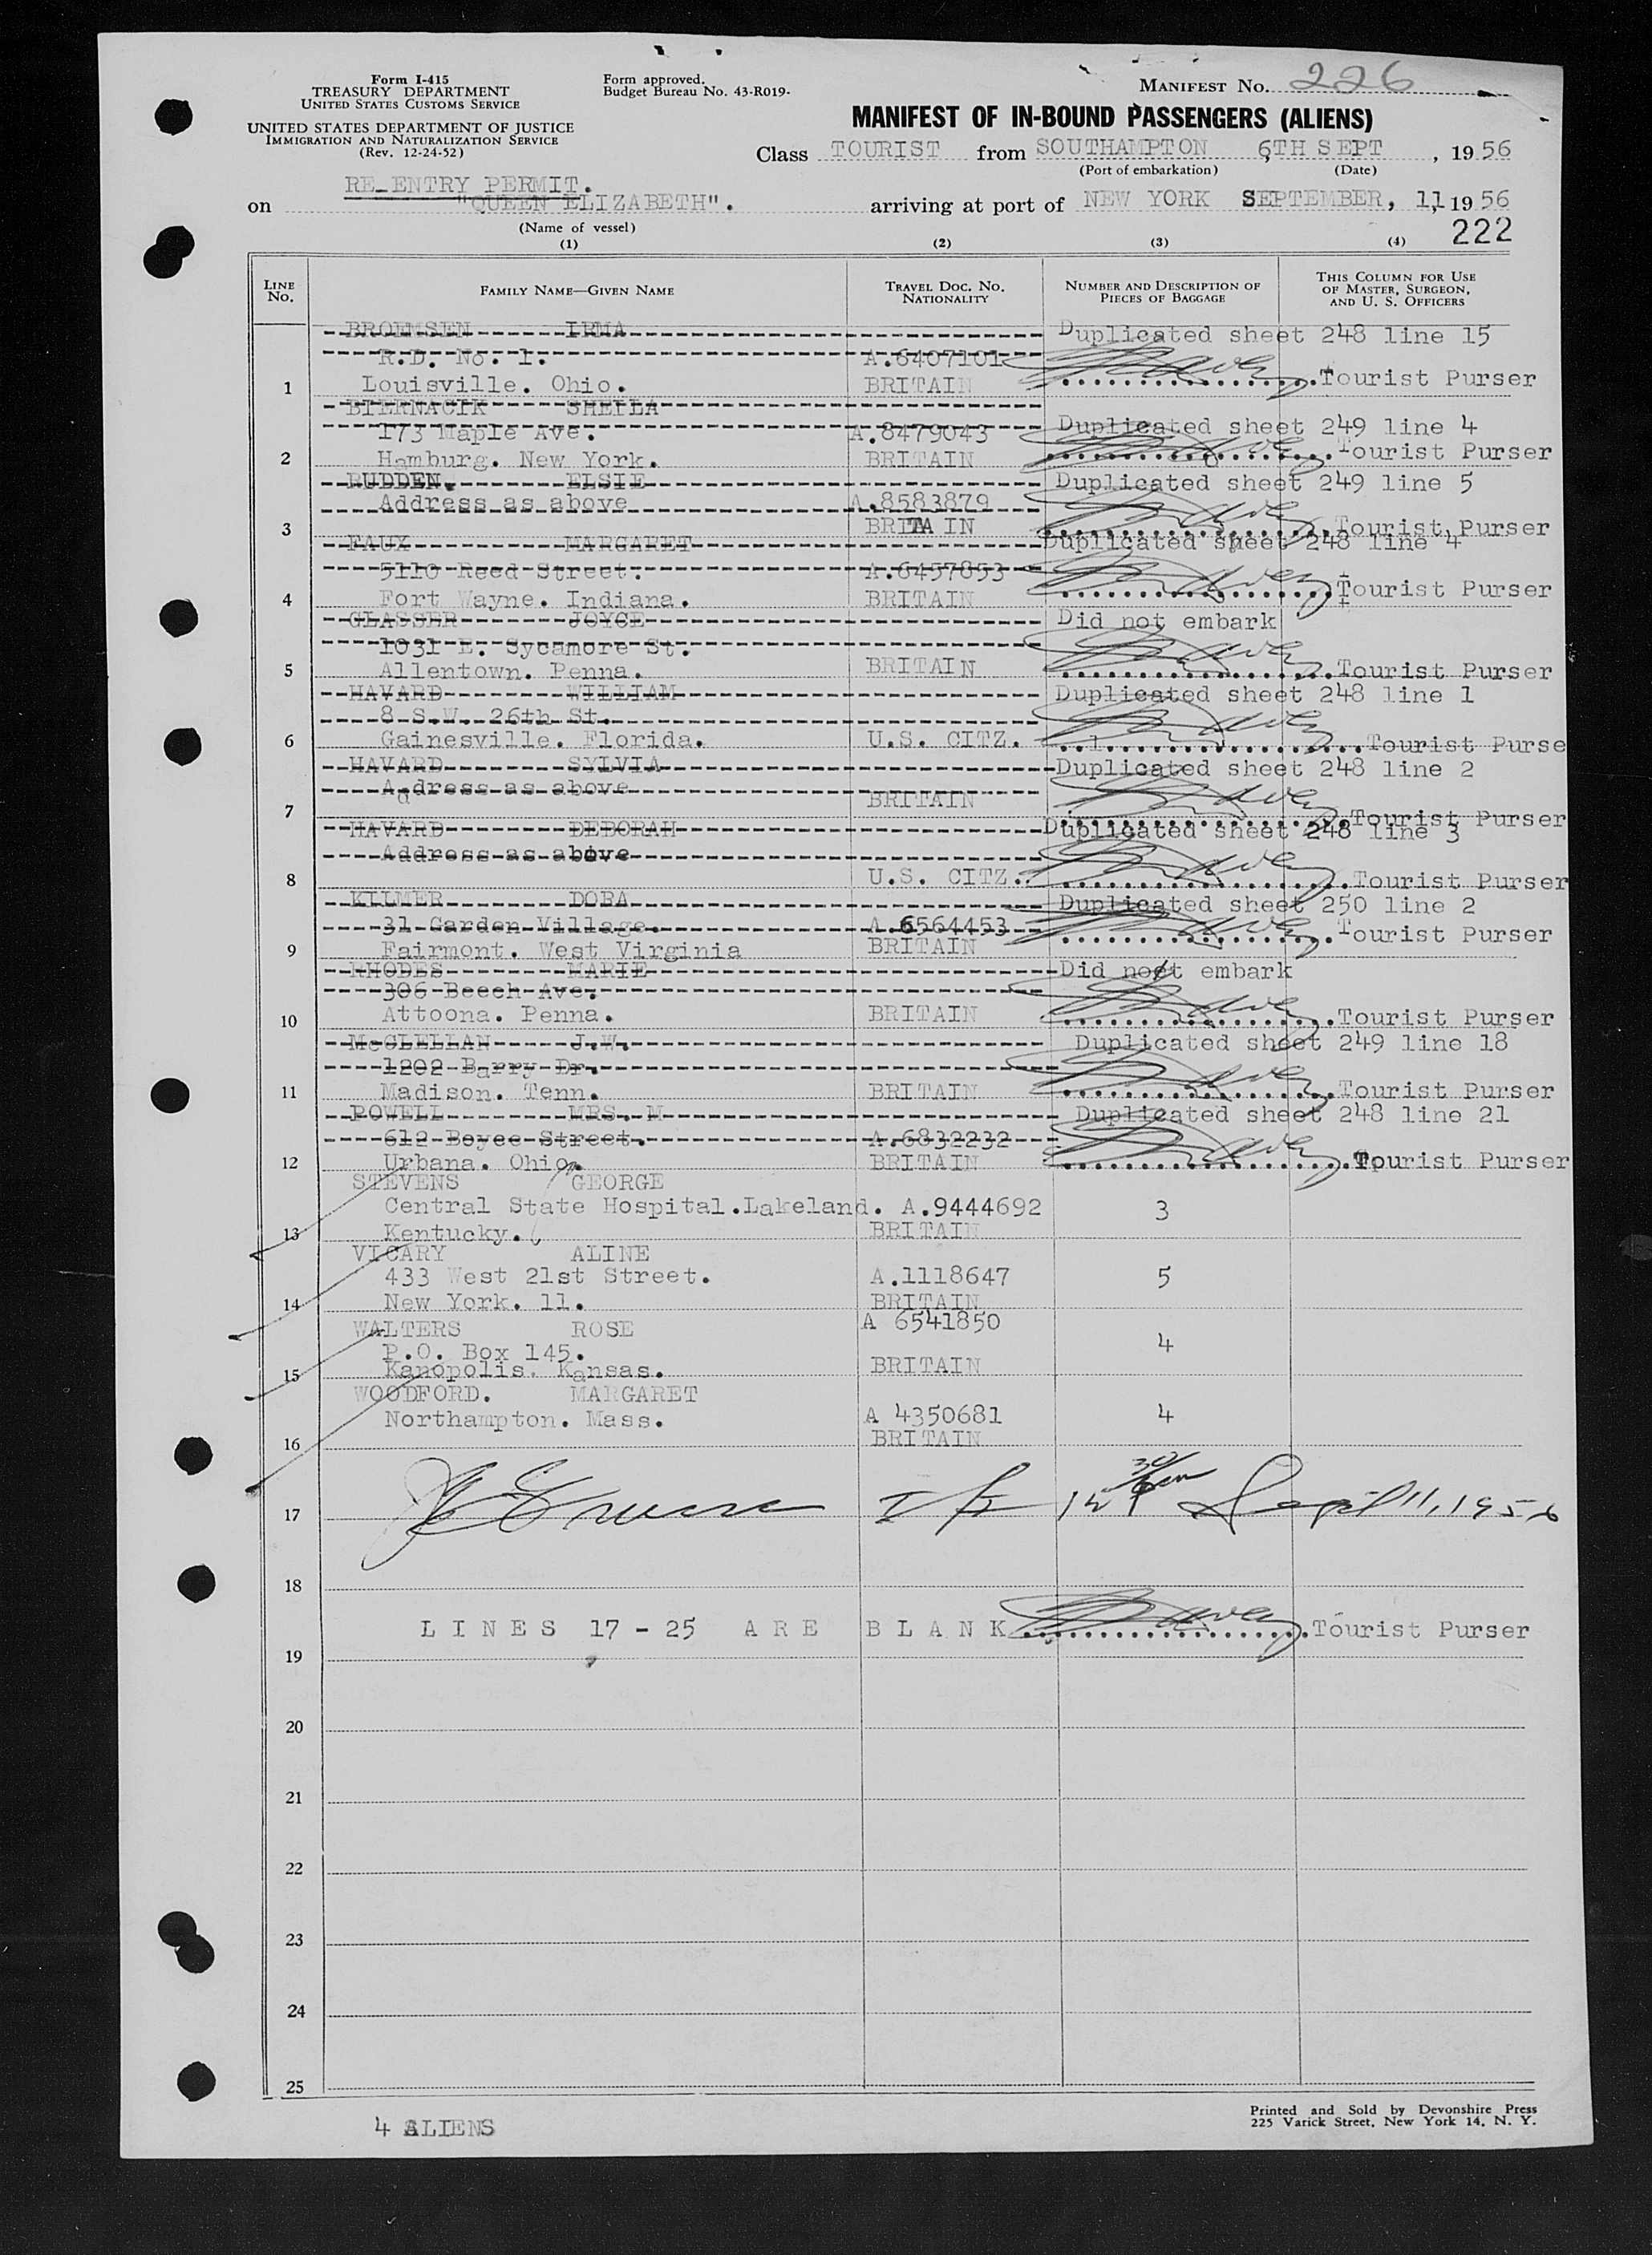 Form I-415
TREASURY DEPARTMENT
UNITED STATES CUSTOMS SERVICE
Form approved.
Budget Bureau No. 43-R019-
MANIFEST NO. 226
UNITED STATES DEPARTMENT OF JUSTICE
IMMIGRATION AND NATURALIZATION SERVICE
(Rev. 12-24-52)
MANIFEST OF IN-BOUND PASSENGERS (ALIENS)
Class TOURIST from SOUTHAMPTON 6TH SEPT , 1956
(Port of embarkation) (Date)
RE-ENTRY PERMIT.
on "QUEEN ELIZABETH". arriving at port of NEW YORK SEPTEMBER, 11, 1956
(Name of vessel)
222
(1) (2) (3) (4)
LINE No. FAMILY NAME—GIVEN NAME TRAVEL DOC. NO. NATIONALITY NUMBER AND DESCRIPTION OF PIECES OF BAGGAGE THIS COLUMN FOR USE OF MASTER, SURGEON, AND U. S. OFFICERS
BROEMSEN IRMA Duplicated sheet 248 line 15
R.D. No. 1. A.6407101
1 Louisville. Ohio. BRITAIN Tourist Purser
BIERNACIK SHEILA
173 Maple Ave. A.8479043 Duplicated sheet 249 line 4
2 Hamburg. New York. BRITAIN Tourist Purser
RUDDEN. ELSIE Duplicated sheet 249 line 5
Address as above A.8583879
3 BRITAIN Tourist Purser
FAUX MARGARET Duplicated sheet 248 line 4
5110 Reed Street. A.6457853
4 Fort Wayne. Indiana. BRITAIN Tourist Purser
GLASSER JOYCE Did not embark
1031 E. Sycamore St.
5 Allentown. Penna. BRITAIN Tourist Purser
HAVARD WILLIAM Duplicated sheet 248 line 1
8 S.W. 26th St.
6 Gainesville. Florida. U.S. CITZ. 1 Tourist Purse
HAVARD SYLVIA Duplicated sheet 248 line 2
Address as above
7 BRITAIN Tourist Purser
HAVARD DEBORAH Duplicated sheet 248 line 3
Address as above
8 U.S. CITZ. Tourist Purser
KILMER DORA Duplicated sheet 250 line 2
31 Garden Village. A.6564453
9 Fairmont. West Virginia BRITAIN Tourist Purser
RHODES MARIE Did not embark
306 Beech Ave.
10 Attoona. Penna. BRITAIN Tourist Purser
McCLELLAN J.W. Duplicated sheet 249 line 18
1202 Barry Dr.
11 Madison. Tenn. BRITAIN Tourist Purser
POWELL MRS. M Duplicated sheet 248 line 21
612 Boyce Street. A.6832232
12 Urbana. Ohio. BRITAIN Tourist Purser
STEVENS GEORGE
Central State Hospital.Lakeland. A.9444692 3
13 Kentucky. BRITAIN
VICARY ALINE
433 West 21st Street. A.1118647 5
14 New York. 11. BRITAIN
WALTERS ROSE A 6541850
P.O. Box 145. 4
15 Kanopolis. Kansas. BRITAIN
WOODFORD. MARGARET
Northampton. Mass. A 4350681 4
16 BRITAIN
17 Sept 11, 1956
18
LINES 17 - 25 ARE BLANK Tourist Purser
19
20
21
22
23
24
25
4 ALIENS
Printed and Sold by Devonshire Press
225 Varick Street, New York 14, N. Y.